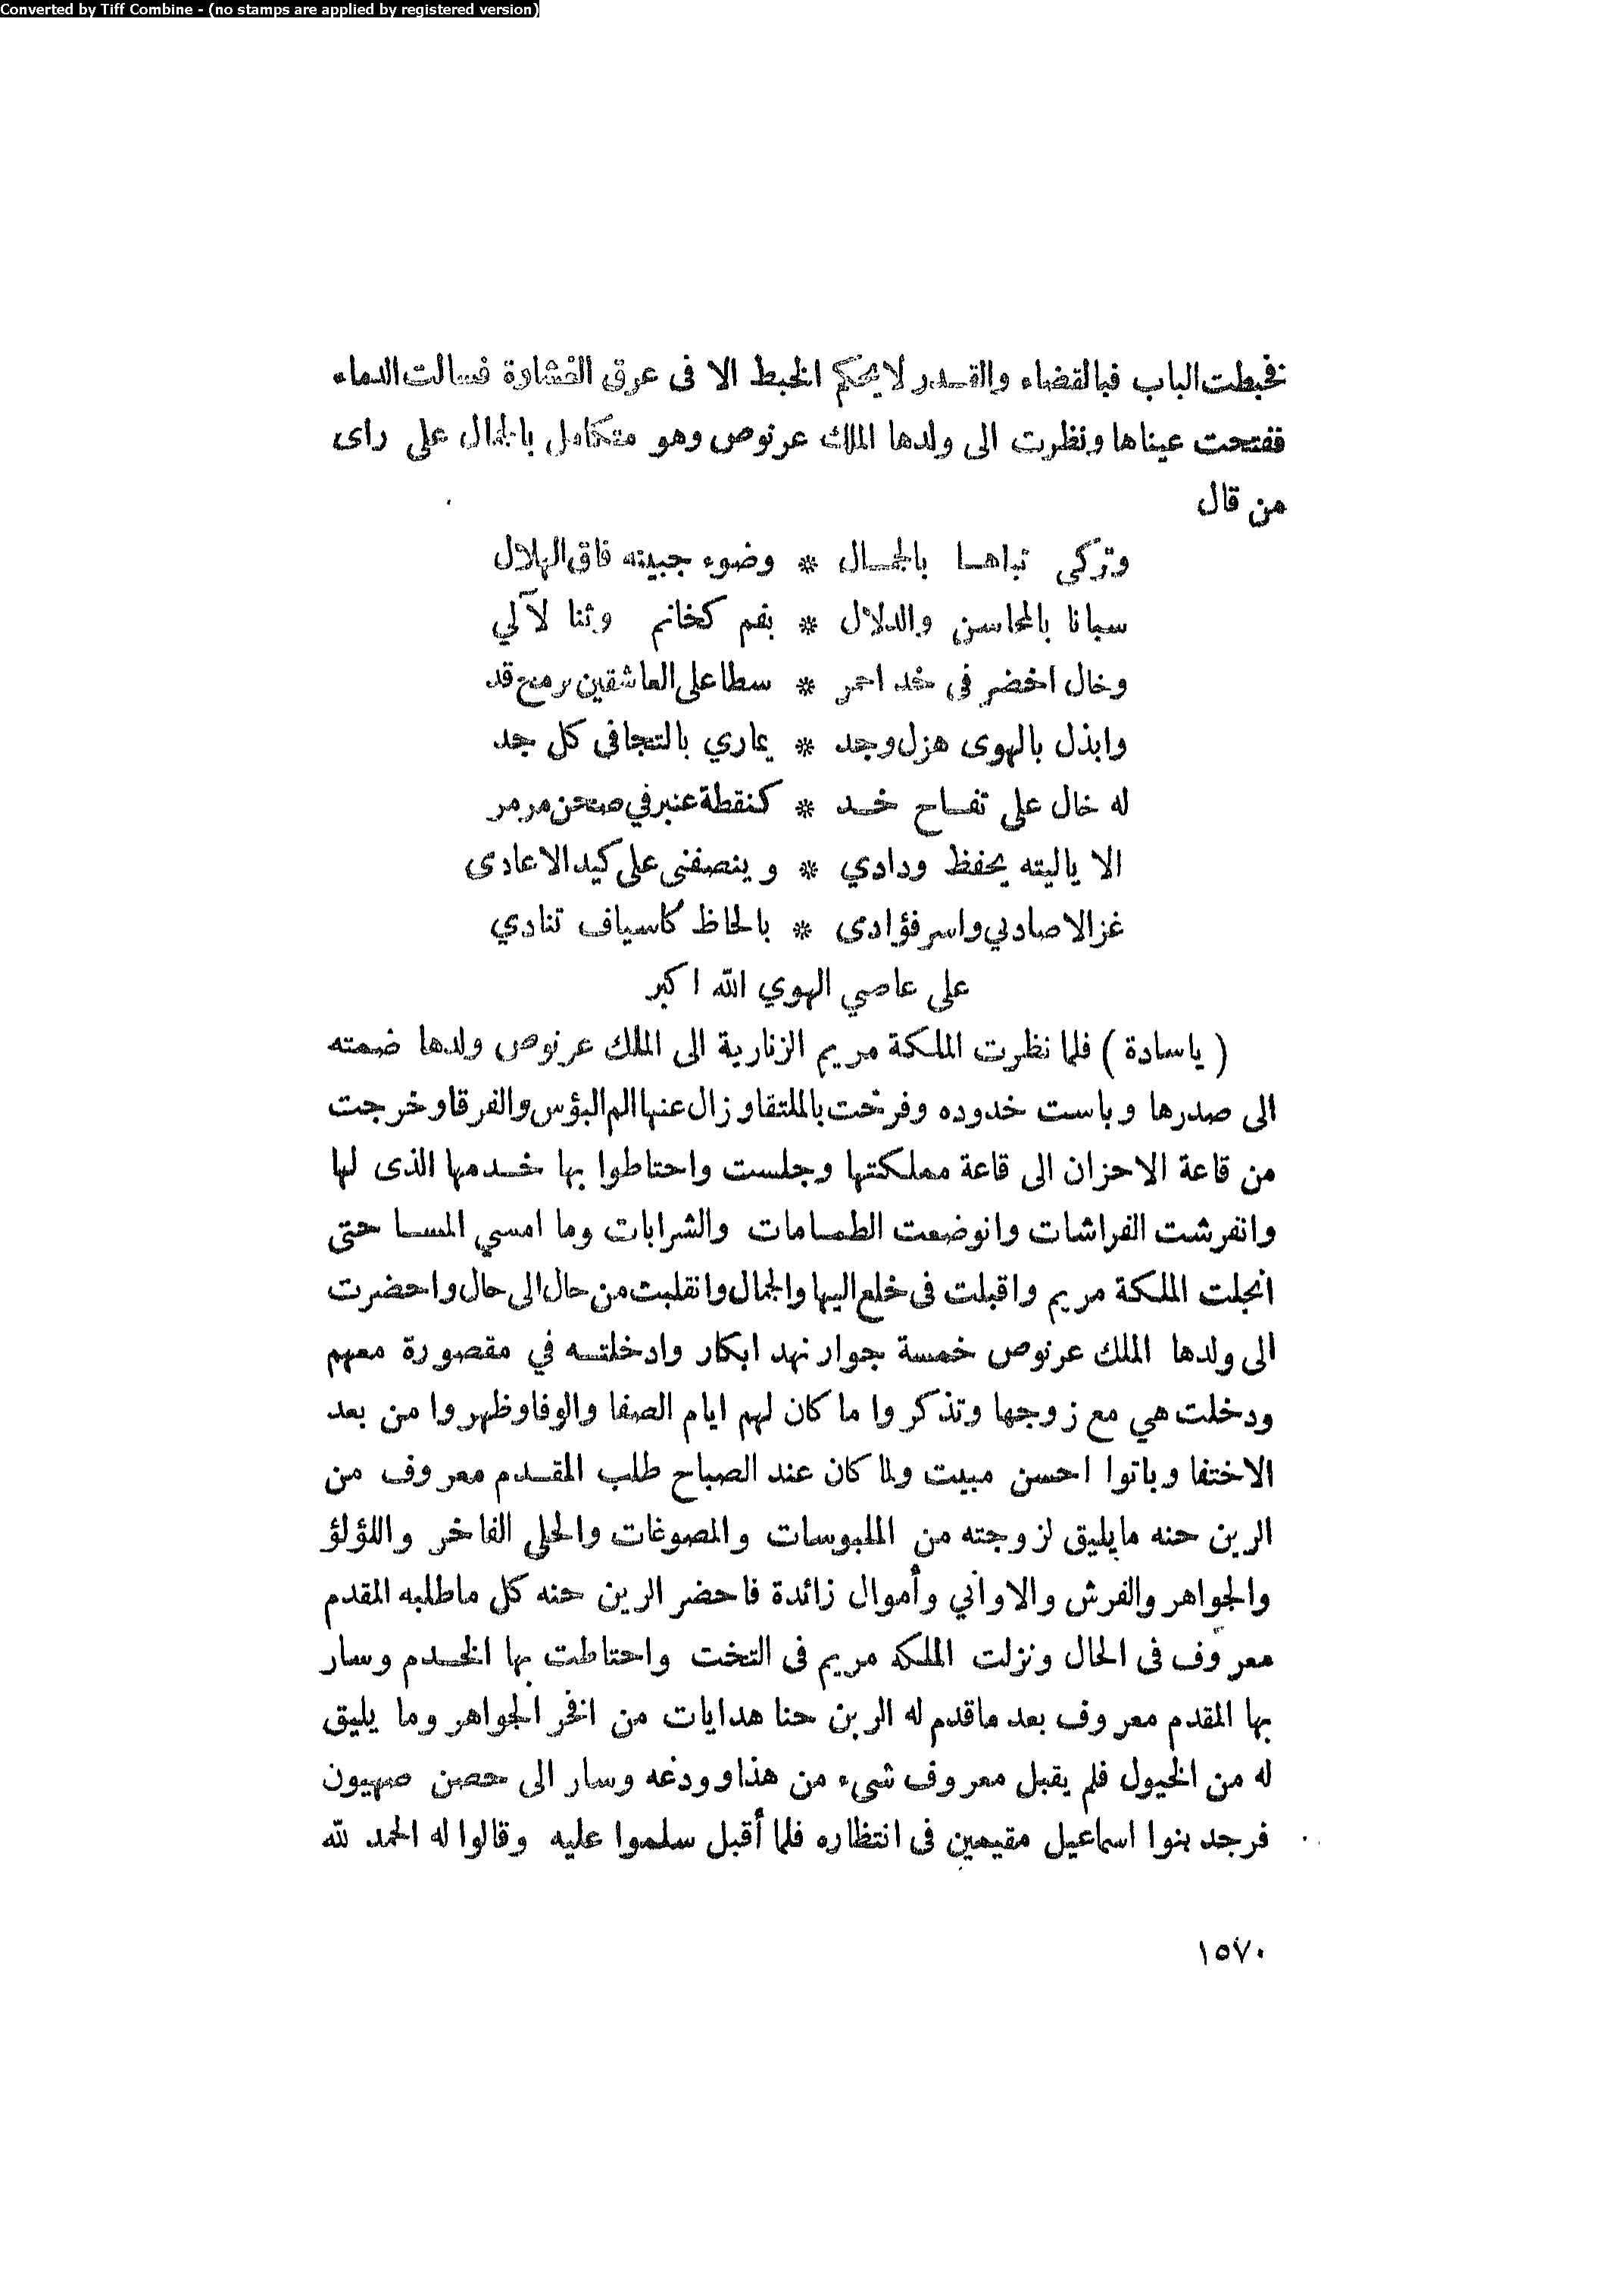 Converted by Tiff Combine - (no stamps are applied by registered version)
فخبطت الباب فبالقضاء والقـدر لا يحكم الخبط الا فى عرق الغشاوة فسالت الدماء
ففتحت عيناها ونظرت الى ولدها الملك عرنوص وهو متكامل بالجمال على راى
من قال
وتركى تباهـا بالجمـال * وضوء جبينه فاق الهلال
سبانا بالمحاسن والدلال * بفم كخاتم وثنا لآلي
وخال اخضر فى خد احمر * سطا على العاشقين برمح قد
وابذل بالهوى هزل وجد * يمارى بالتجافى كل جد
له خال على تفـاح خـد * كنقطة عنبر في صحن مرمر
الا ياليته يحفظ ودادي * وينصفنى على كيد الاعادى
غزالا صادني واسر فؤادى * بالحاظ كاسياف تنادي
على عاصي الهوي الله اكبر
( ياسادة ) فلما نظرت الملكة مريم الزنارية الى الملك عرنوص ولدها ضمته
الى صدرها وباست خدوده وفرحت بالملتقا وزال عنها الم البؤس والفرقا وخرجت
من قاعة الاحزان الى قاعة مملكتها وجلست واحتاطوا بها خـدمها الذى لها
وانفرشت الفراشات وانوضعت الطعـامات والشرابات وما امسي المسـا حتى
انجلت الملكة مريم واقبلت فى خلع البها والجمال وانقلبت من حال الى حال واحضرت
الى ولدها الملك عرنوص خمسة جوار نهد ابكار وادخلتـه في مقصورة معهم
ودخلت هي مع زوجها وتذكروا ما كان لهم ايام الصفا والوفا وظهروا من بعد
الاختفا وباتوا احسن مبيت ولما كان عند الصباح طلب المقـدم معروف من
الرين حنه مايليق لزوجته من الملبوسات والمصوغات والحلى الفاخر واللؤلؤ
والجواهر والفرش والاواني وأموال زائدة فاحضر الرين حنه كل ماطلبه المقدم
معروف فى الحال ونزلت الملكه مريم فى التخت واحتاطت بها الخـدم وسار
بها المقدم معروف بعد ماقدم له الربن حنا هدايات من افخر الجواهر وما يليق
له من الخيول فلم يقبل معروف شىء من هذا وودعه وسار الى حصن صهيون
فرجد بنوا اسماعيل مقيمين فى انتظاره فلما أقبل سلموا عليه وقالوا له الحمد لله
١٥٧٠